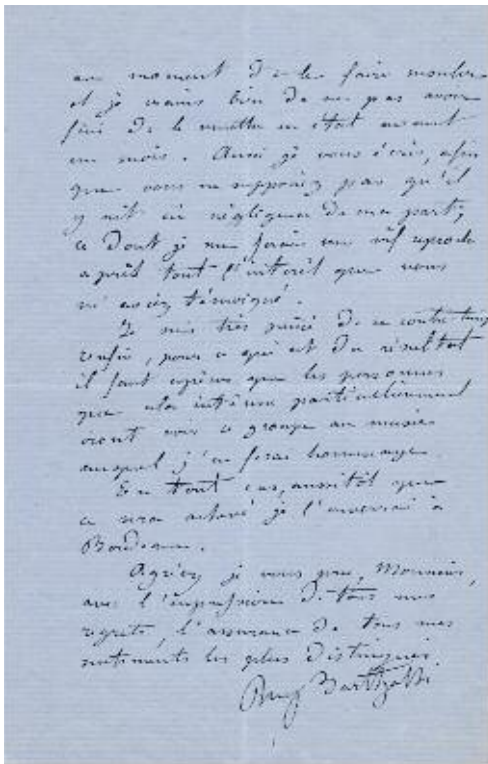 au moment de les faire mouler
et je crains bien de ne pas avoir
fini de le mettre en état avant
un mois. Aussi je vous écris, afin
que vous ne supposiez pas qu'il
y ait eu négligence de ma part,
ce dont je me ferais un vif reproche
après tout l'intérêt que vous
m'avez témoigné.
Je suis très peiné de ce contre temps
enfin, pour ce qui est du résultat
il faut espérer que les personnes
que cela intéresse particulièrement
iront voir ce groupe au musée
auquel j'en ferai hommage.
En tout cas, aussitôt que
ce sera achevé je l'enverrai à
Bordeaux.
Agréez je vous prie, Monsieur,
avec l'expression de tous mes
regrets, l'assurance de tous mes
sentiments les plus distingués
Bartholdi